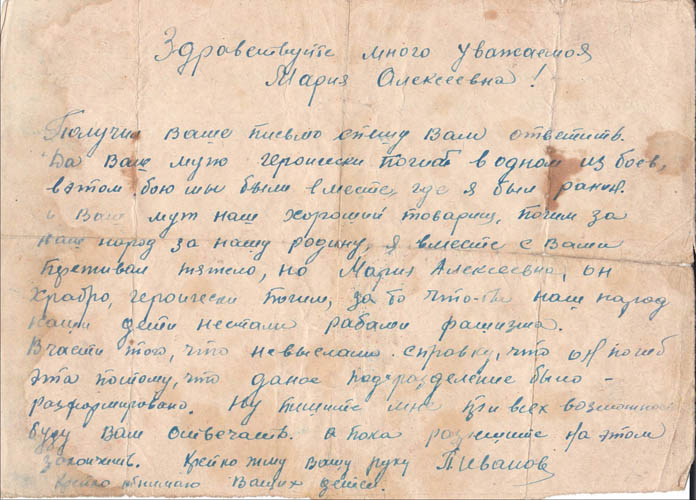 Здравствуйте много уважаемая
Мария Алексеевна!
Получив Ваше письмо спешу Вам ответить.
Да Ваш муж героически погиб в одном из боев,
в этом бою мы были вместе, где я был ранен.
и Ваш муж наш хороший товарищ, погиб за
наш народ за нашу родину, я вместе с Вами
переживаю тяжело, но Мария Алексеевна, он
храбро, героически погиб, за то что-бы наш народ
наши дети нестали рабами фашизма.
Вчасти того, что невыслали справку, что он погиб
это потому, что даное подразделение было -
разформировано. Ну пишите мне при всех возможност
буду Вам отвечать. а пока разрешите на этом
закончить. Крепко жму Вашу руку П Иванов
Крепко обнимаю Ваших детей.